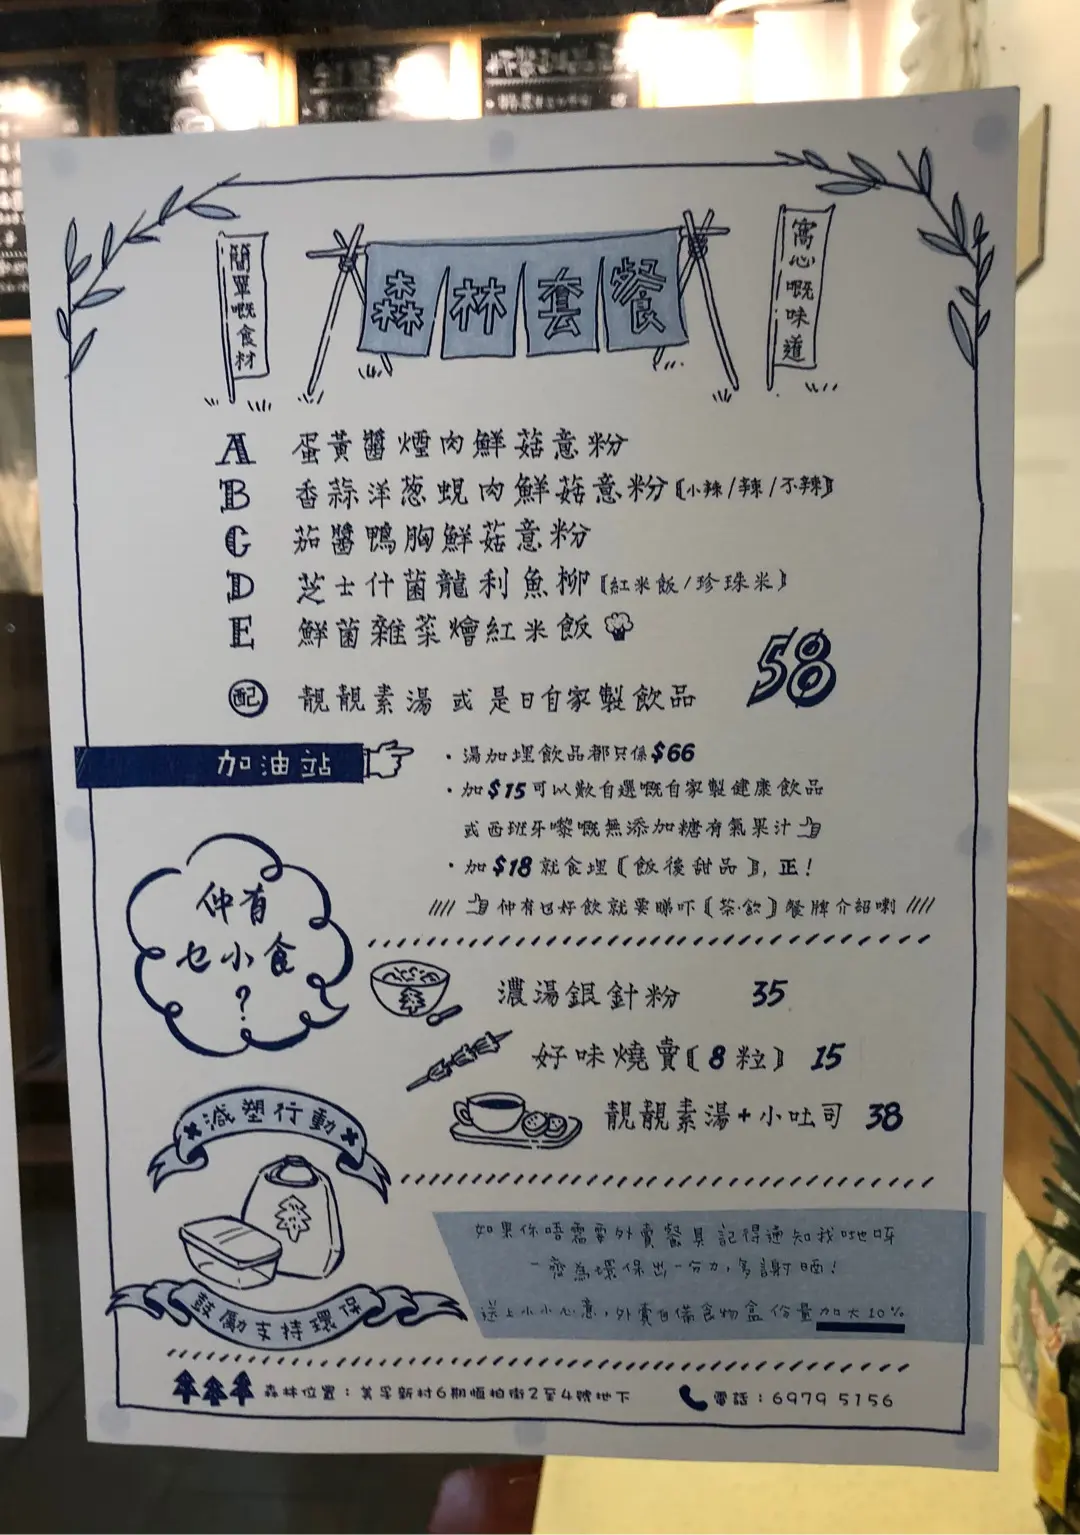 簡單嘅食材
森林套餐
窩心嘅味道
A 蛋黃醬煙肉鮮菇意粉
B 香蒜洋葱蜆肉鮮菇意粉〔小辣/辣/不辣〕
C 茄醬鴨胸鮮菇意粉
D 芝士什菌龍利魚柳〔紅米飯/珍珠米〕
E 鮮菌雜菜燴紅米飯
58
配 靚靚素湯 或 是日自家製飲品
加油站
・湯加埋飲品都只係$66
・加$15可以歎自選嘅自家製健康飲品
或西班牙嚟嘅無添加糖有氣果汁
・加$18就食埋〔飯後甜品〕, 正!
//// 仲有乜好飲就要睇吓〔茶・飲〕餐牌介紹喇 ////
仲有
乜小食
?
濃湯銀針粉 35
好味燒賣〔8粒〕 15
靚靚素湯+小吐司 38
減塑行動
鼓勵支持環保
如果你唔需要外賣餐具記得通知我哋呀
一齊為環保出一分力,多謝晒!
送上小小心意,外賣自備食物盒份量加大10%
森林位置:美孚新村6期恒柏街2至4號地下
電話:6979 5156